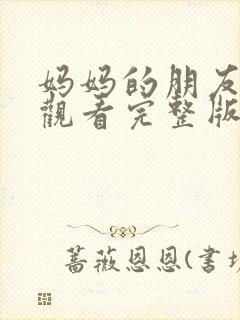 妈妈的朋友
觀看完整版
蔷薇恩恩(书坊